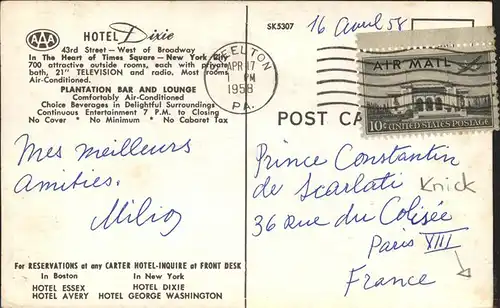 AAA
HOTEL Dixie
43rd Street — West of Broadway
In The Heart of Times Square — New York City
700 attractive outside rooms, each with private
bath, 21" TELEVISION and radio. Most rooms
Air-Conditioned.
PLANTATION BAR AND LOUNGE
Comfortably Air-Conditioned
Choice Beverages in Delightful Surroundings
Continuous Entertainment 7 P.M. to Closing
No Cover * No Minimum * No Cabaret Tax
Mes meilleurs
amitiés.
For RESERVATIONS at any CARTER HOTEL-INQUIRE at FRONT DESK
In Boston In New York
HOTEL ESSEX HOTEL DIXIE
HOTEL AVERY HOTEL GEORGE WASHINGTON
SK5307
16 avril 58
STEELTON
APR 17
1 PM
1958
PA.
AIR MAIL
10¢ UNITED STATES POSTAGE
POST
Prince Constantin
de Scarlati Knick
36 Rue du Colisée
Paris VIII
France